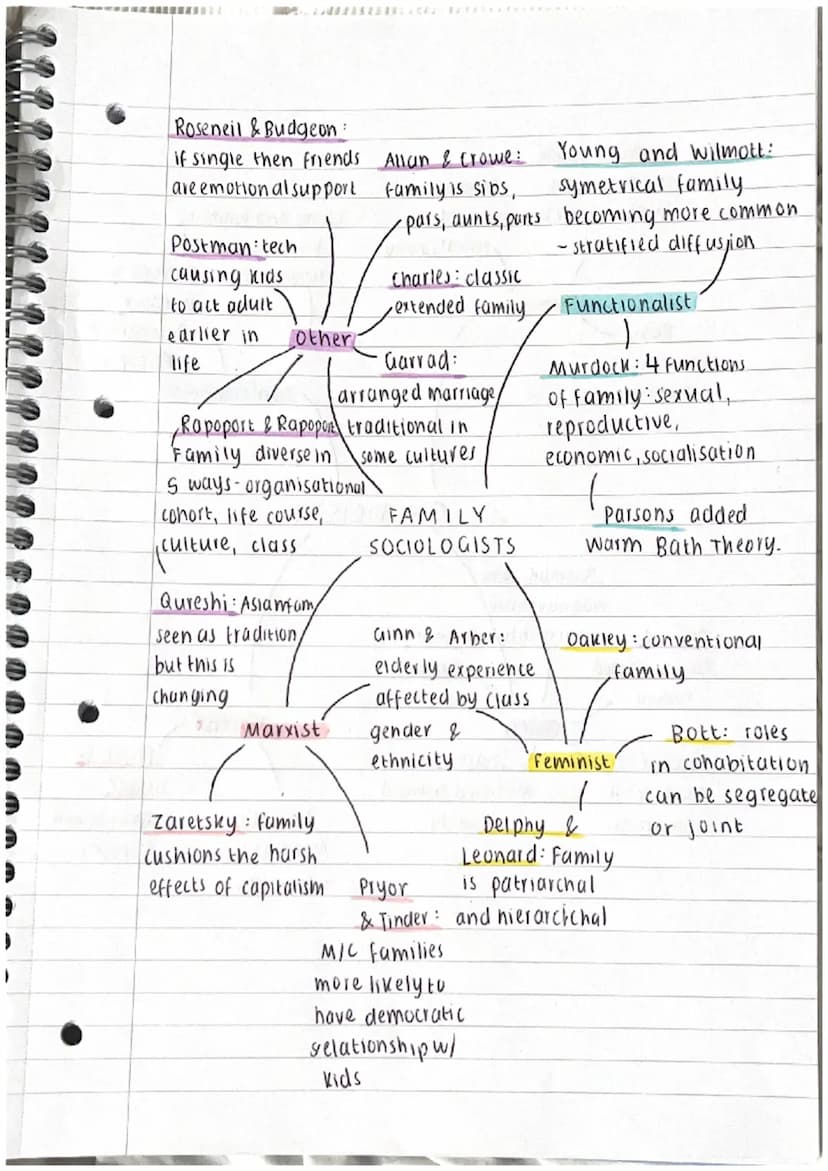 Roseneil & Budgeon:
if single then friends
are emotional support
Allan & Crowe:
family is sibs,
pars, aunts, parts
Young and Wilmott:
symetrical family
becoming more common
- stratified diffusion
Postman: tech
causing kids
to act adult
earlier in
life
Charles: classic
extended family
Functionalist
Other
Garrad:
arranged marriage
traditional in
some cultures
Murdock: 4 functions
of family: sexual,
reproductive,
economic, socialisation
Rapoport & Rapoport
Family diverse in
5 ways - organisational
cohort, life course,
culture, class
Parsons added
Warm Bath Theory.
FAMILY
SOCIOLOGISTS
Qureshi: Asian fam
seen as tradition
but this is
changing
Ginn & Arber:
elderly experience
affected by class
gender &
ethnicity
Oakley: conventional
family
Marxist
Feminist
Bott: roles
in cohabitation
can be segregate
or joint
Zaretsky: family
cushions the harsh
effects of capitalism
Delphy &
Leonard: Family
is patriarchal
and hierarchal
Pryor
& Tinder:
M/C families
more likely to
have democratic
relationship w/
kids